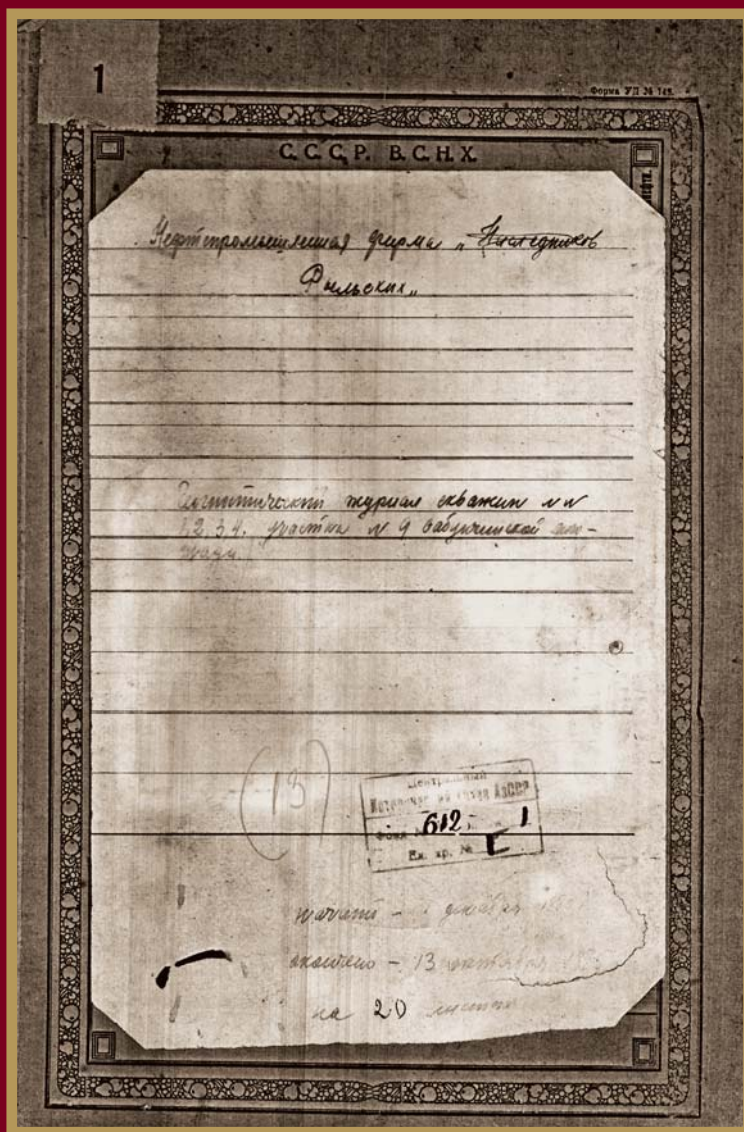 1
Форма УД № 748.
С.С.С.Р. В.С.Н.Х.
Нефтепромышленная фирма „Наследников
Рыльских„
журнал скважин №№
1, 2, 3, 4. участка № 9 Бабушкинской
13
Центральный
Исторический архив АзССР
Фонд № 612 1
Ед. хр. №
начато – декабря
окончено – 13 октября
на 20 листах